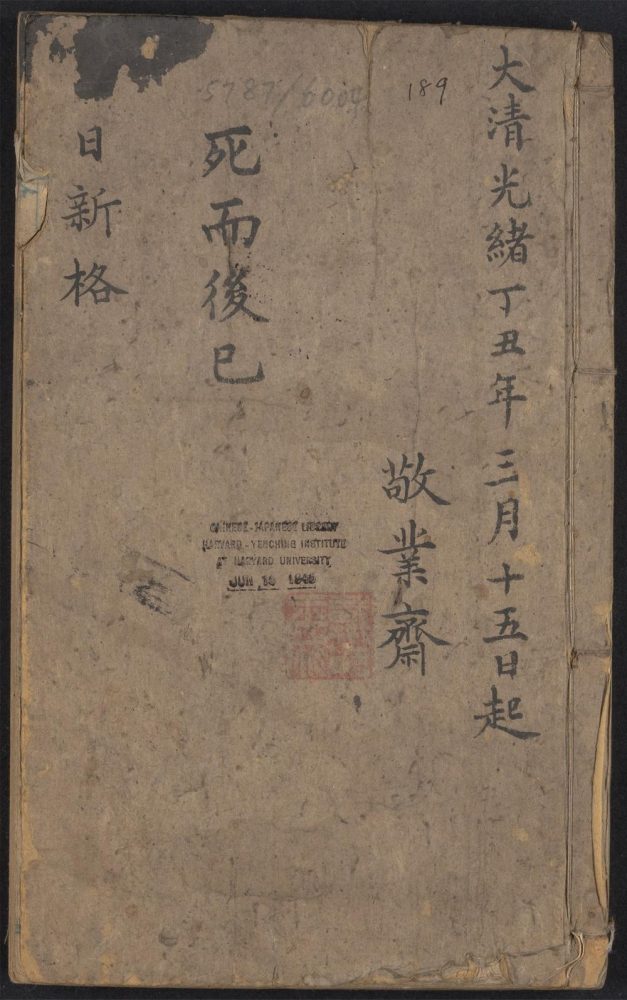 大清光緒丁丑年三月十五日起
敬業齋
死而後已
日新格
5787/6004
189
CHINESE-JAPANESE LIBRARY
HARVARD-YENCHING INSTITUTE
AT HARVARD UNIVERSITY
JUN 15